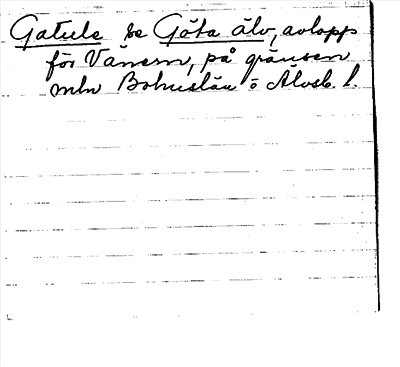 Gatule se Göta älv, avlopp
för Vänern, på gränsen
mln Bohuslän o Älvsb. l.